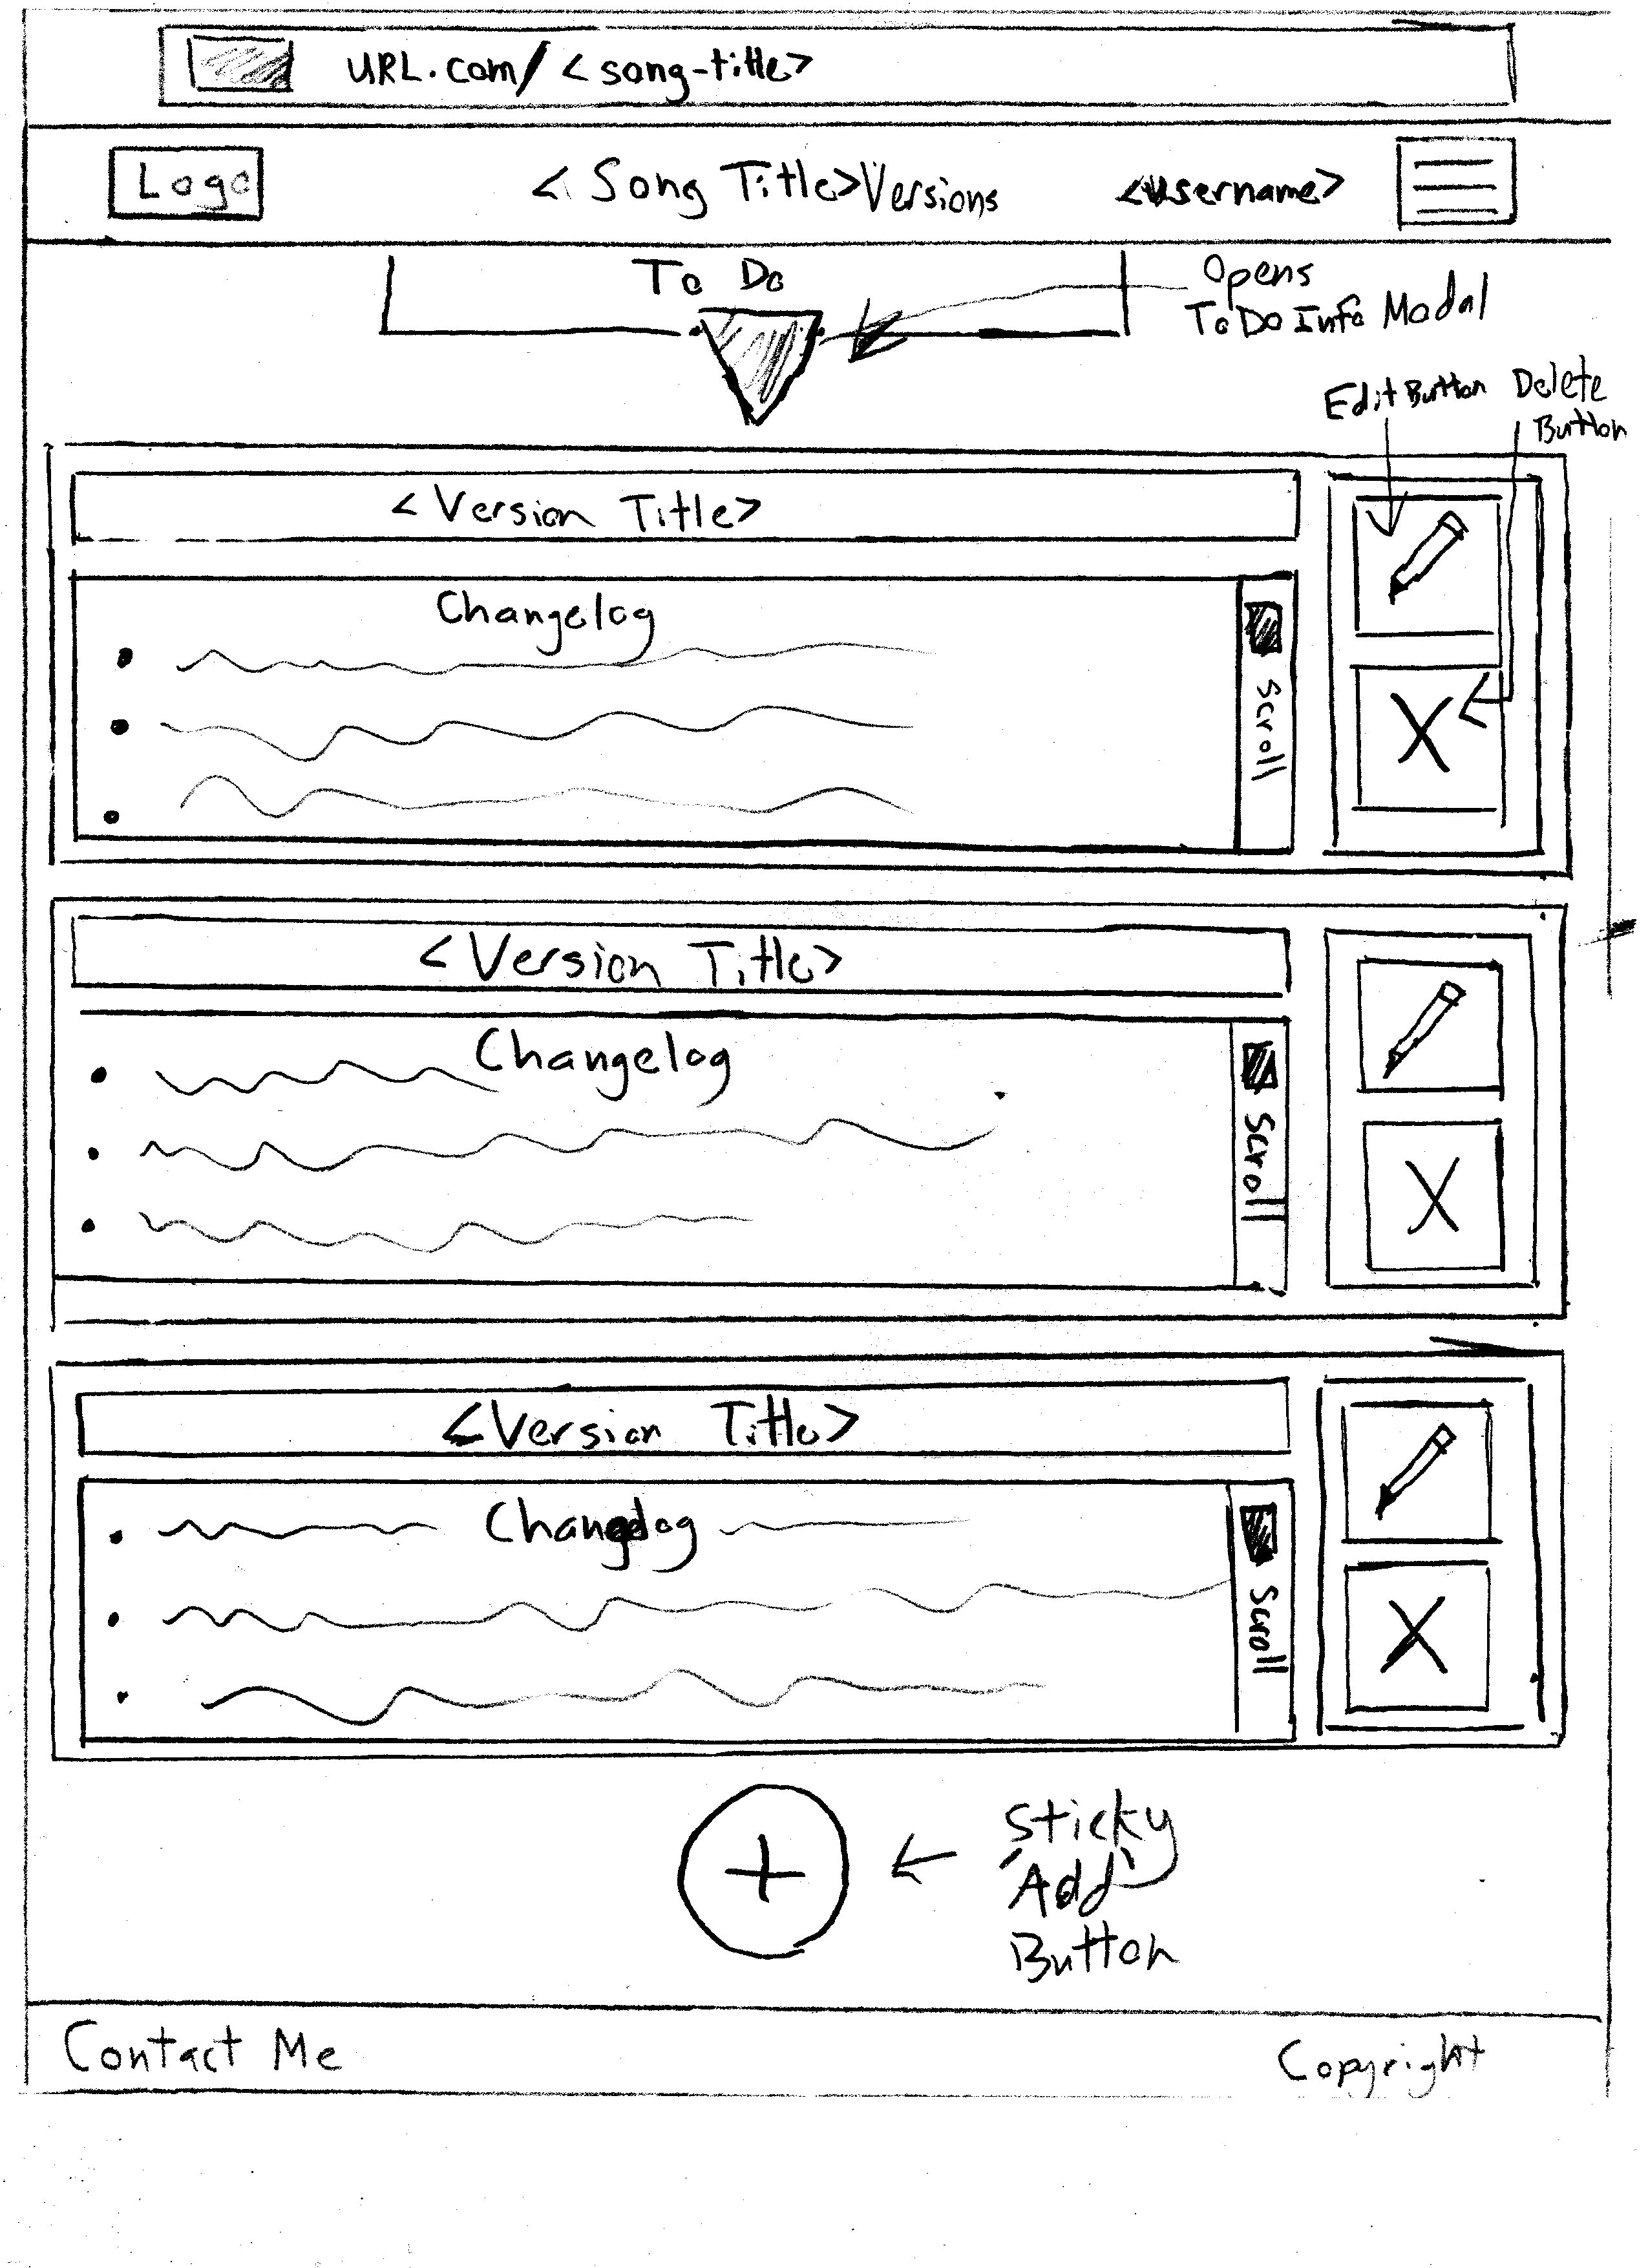 URL.com/ <song-title>
Logo
<Song Title> Versions
<username>
To Do
Opens
To Do Info Modal
Edit Button
Delete
Button
<Version Title>
Changelog
Scroll
<Version Title>
Changelog
Scroll
<Version Title>
Changelog
Scroll
+
Sticky
'Add'
Button
Contact Me
Copyright